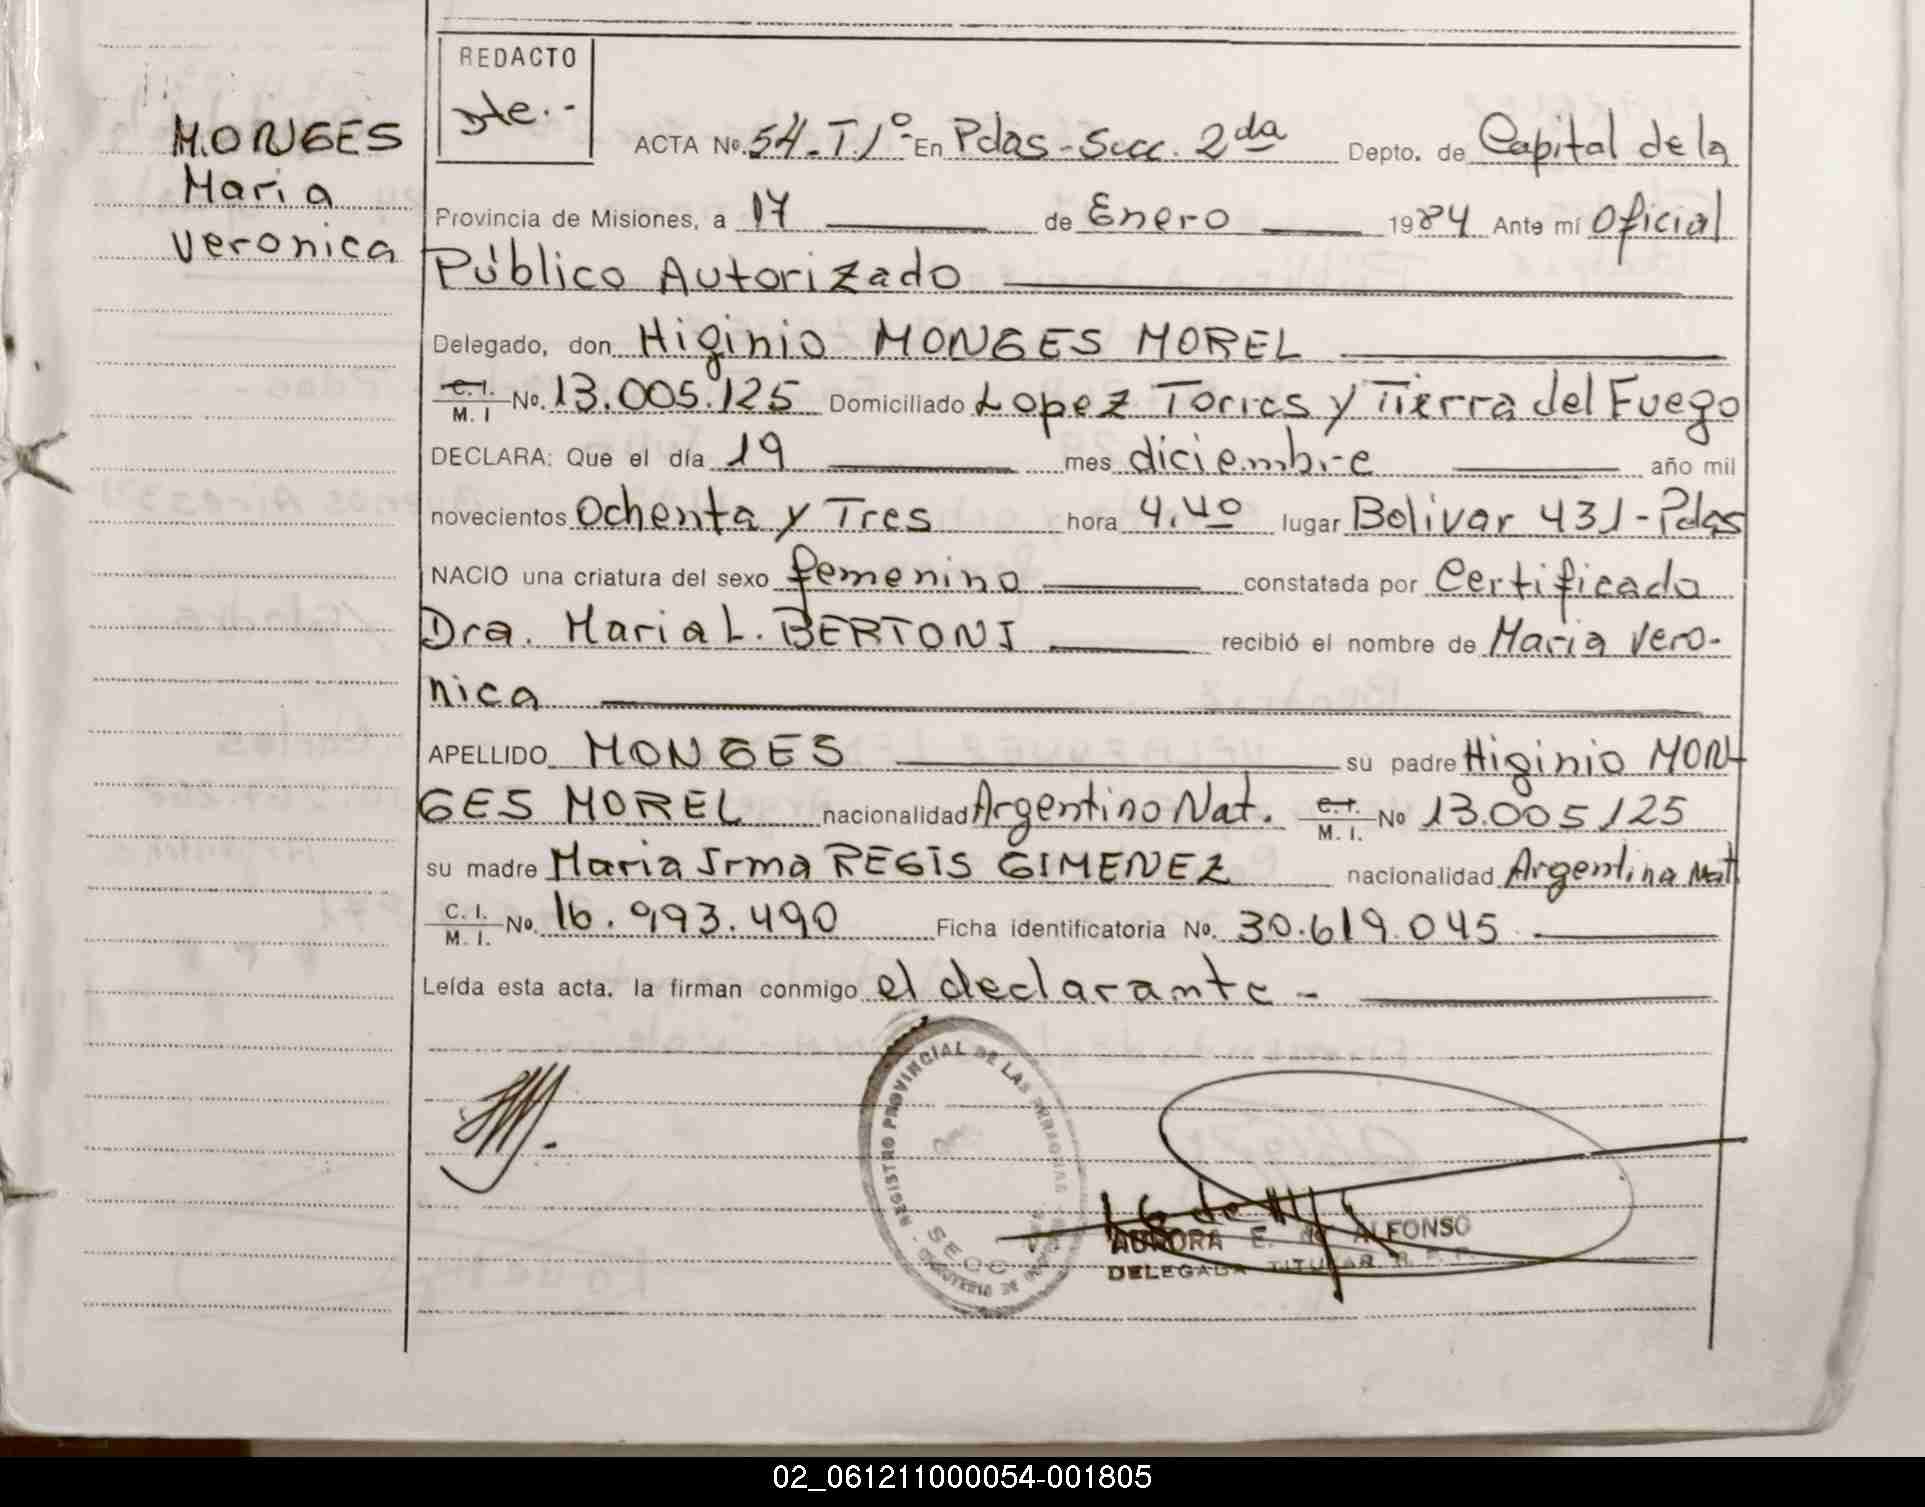 REDACTO
Dte.-
MONGES
Maria
Veronica
ACTA Nº. 54-T.1º- En Pdas-Secc. 2da Depto. de Capital de la
Provincia de Misiones, a 17 de Enero 1984 Ante mí Oficial
Público Autorizado
Delegado, don Higinio MONGES MOREL
C.I. / M. I Nº. 13.005.125 Domiciliado Lopez Torres y Tierra del Fuego
DECLARA: Que el día 19 mes diciembre año mil
novecientos Ochenta y Tres hora 4.40 lugar Bolivar 431-Pdas
NACIO una criatura del sexo femenino constatada por Certificado
Dra. Maria L. BERTONI recibió el nombre de Maria Vero-
nica
APELLIDO MONGES su padre Higinio MON-
GES MOREL nacionalidad Argentino Nat. C.I. / M. I. Nº 13.005125
su madre Maria Irma REGIS GIMENEZ nacionalidad Argentina Nat
C. I. / M. I. Nº. 16.993.490 Ficha identificatoria Nº. 30.619.045
Leída esta acta, la firman conmigo el declarante -
REGISTRO PROVINCIAL DE LAS PERSONAS
SECC
AURORA E. de ALFONSO
DELEGADA TITULAR R.P.P.
02_061211000054-001805